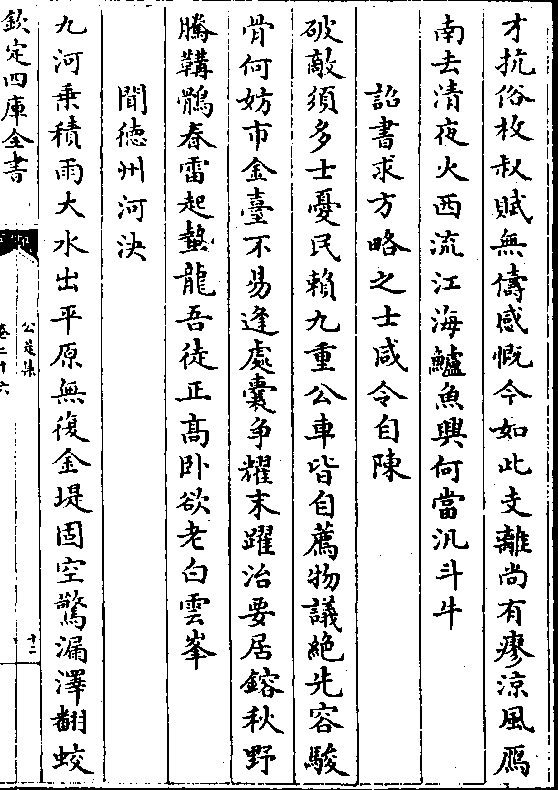 才抗俗枚叔賦無儔感慨今如此支離尚有瘳涼風鴈
南去清夜火西流江海鱸魚興何當汎斗牛
詔書求方略之士咸令自陳
破敵須多士憂民賴九重公車皆自薦物議絶先容駿
骨何妨市金臺不易逢處囊争耀末躍冶要居鎔秋野
騰韝鶻春雷起蟄龍吾徒正髙卧欲老白雲峯
聞徳州河決
九河乗積雨大水出平原無復金堤固空驚漏澤翻蛟
欽定四庫全書
公是集
卷二十六
十二